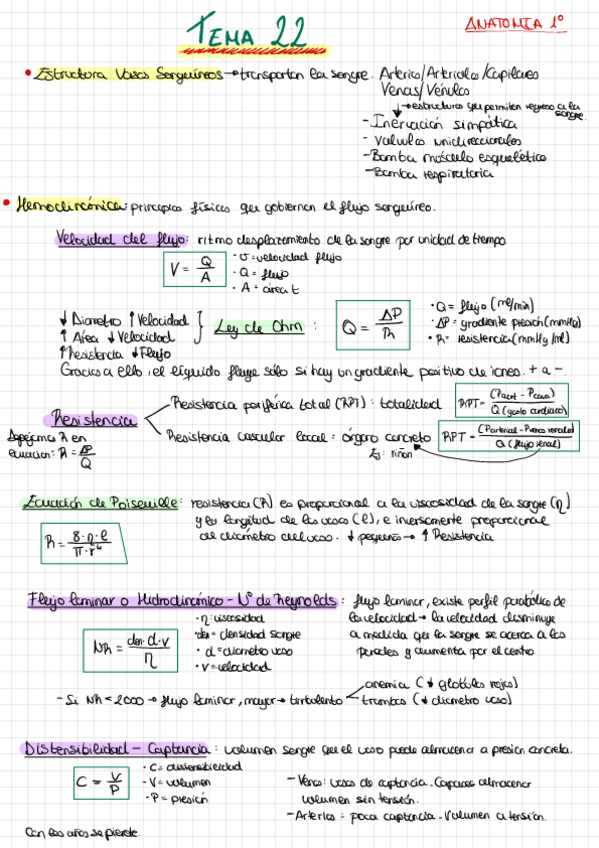 TEMA 22
ANATOMIA 1º
• Estructura Vasos Sanguíneos → transportan la sangre. Arterias/Arteriolas/Capilares
Venas/Vénulas
↳ estructuras que permiten regreso a la sangre.
- Inervación simpática
- Valvulas unidireccionales
- Bomba músculo esquelético
- Bomba respiratoria
• Hemodinámica: principios físicos que gobiernan el flujo sanguíneo.
Velocidad del flujo: ritmo desplazamiento de la sangre por unidad de tiempo
V = Q/A
• v = velocidad flujo
• Q = flujo
• A = área t
↓ Diametro ↑ Velocidad
↑ Área ↓ Velocidad
↑ Resistencia ↓ Flujo
Ley de Ohm :
Q = ΔP/R
• Q = flujo (ml/min)
• ΔP = gradiente presión (mmHg)
• R = resistencia (mmHg/ml)
Gracias a ello, el líquido fluye sólo si hay un gradiente positivo de iones. + a -.
Resistencia
Resistencia periférica total (RPT) : totalidad
RPT = (Paort - Pcava)/Q (gasto cardíaco)
Despejamos R en
ecuación: R = ΔP/Q
Resistencia vascular local = órgano concreto
Ej: riñón
RPT = (Parterial - Pvena renales)/Q (flujo renal)
Ecuación de Poiseuille: resistencia (R) es proporcional a la viscosidad de la sangre (η)
y la longitud de los vasos (l), e inversamente proporcional
al diámetro del vaso. ↓ pequeño → ↑ Resistencia
R = 8·η·l/π·r⁴
Flujo laminar o Hidrodinámico - Nº de Reynolds : flujo laminar, existe perfil parabólico de
la velocidad → la velocidad disminuye
a medida que la sangre se acerca a las
paredes y aumenta por el centro.
NR = den·d·v/η
• η: viscosidad
• den = densidad sangre
• d = diametro vaso
• v = velocidad
- Si NR < 2000 → flujo laminar, mayor → turbulento
anemia (↓ globulos rojos)
trombos (↓ diametro vaso)
Distensibilidad - Captancia : volumen sangre que el vaso puede almacenar a presion concreta.
C = V/P
• C = distensibilidad
• V = volumen
• P = presión
- Venas: vasos de captancia. Capaces almacenar
volumen sin tensión.
- Arterias = poca captancia. Volumen a tensión.
Con los años se pierde.